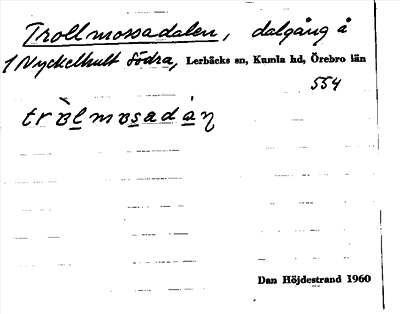 Trollmossadalen, dalgång å
1 Nyckelhult Södra, Lerbäcks sn, Kumla hd, Örebro län
554
Dan Höjdestrand 1960